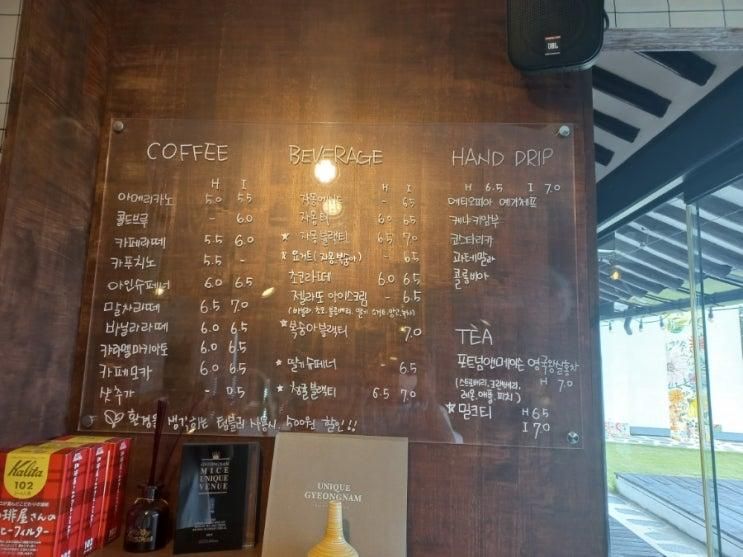 JBL
COFFEE
H I
아메리카노 5.0 5.5
콜드브루 - 6.0
카페라떼 5.5 6.0
카푸치노 5.5 -
아인슈페너 6.0 6.5
말차라떼 6.5 7.0
바닐라라떼 6.0 6.5
카라멜마키아토 6.0 6.5
카페모카 6.0 6.5
샷추가 - 0.5
환경을 생각하는 텀블러 사용시 500원 할인!!
BEVERAGE
H I
자몽에이드 - 6.5
자몽티 6.0 6.5
★ 자몽블랙티 6.5 7.0
★ 요거트(자몽,복숭아) - 6.5
초코라떼 6.0 6.5
젤라또 아이스크림 - 6.5
★ 복숭아블랙티 7.0
★ 딸기슈페너 - 6.5
★ 청귤블랙티 6.5 7.0
HAND DRIP
H 6.5 I 7.0
에티오피아 예가체프
케냐키암부
코스타리카
과테말라
콜롬비아
TEA
포트넘앤메이슨 영국왕실홍차
(스트로베리, 크랜베리, H 7.0
레몬, 애플, 피치)
★ 밀크티 H 6.5
I 7.0
Kalita
102
珈琲屋さんの
コーヒーフィルター
GYEONGNAM
MICE
UNIQUE
VENUE
UNIQUE
GYEONGNAM